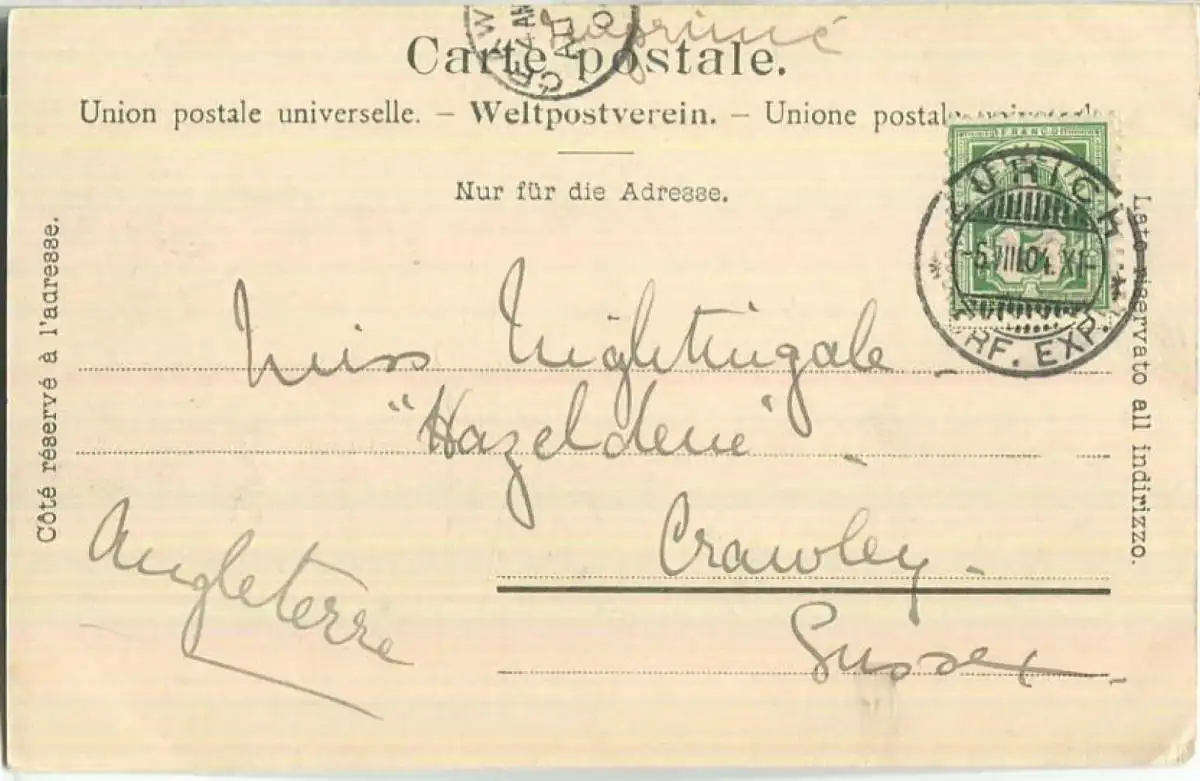 Imprimé
Carte postale.
Union postale universelle. – Weltpostverein. – Unione postale
Nur für die Adresse.
Côté réservé à l'adresse.
Lato riservato all indirizzo.
FRANCO
ZÜRICH
-5.VIII.04.XI-
BRF. EXP.
Miss Nightingale
"Hazeldene"
Crawley
Sussex
Angleterre